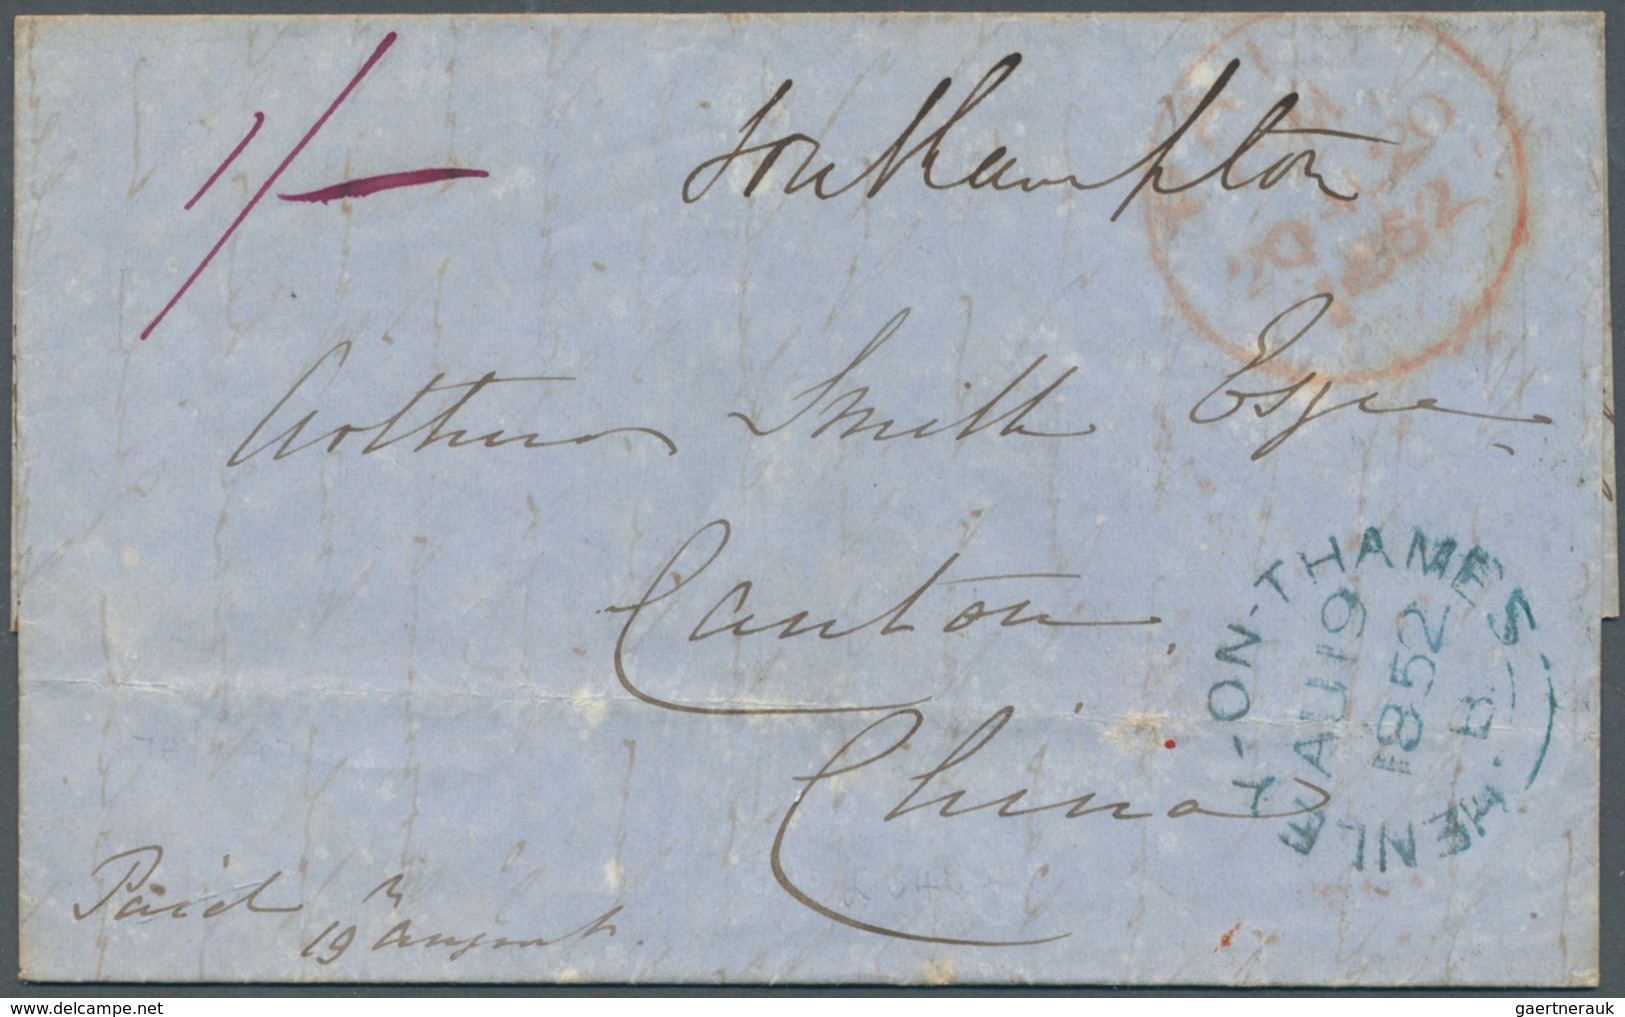 1/-
Southampton
PAID
20 AU 20
1852
Arthur Smith Esqre
Canton
China
HENLEY-ON-THAMES
AU 19
1852
B
Paid
19 August
delcampe.net
gaertnerauk